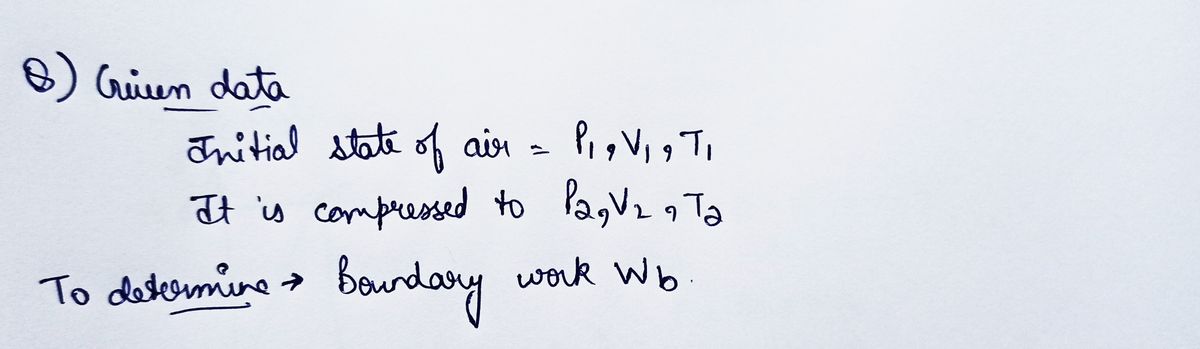 Q) Given data
Initial state of air = P₁, V₁, T₁
It is compressed to P₂, V₂, T₂
To determine → Boundary work Wb.